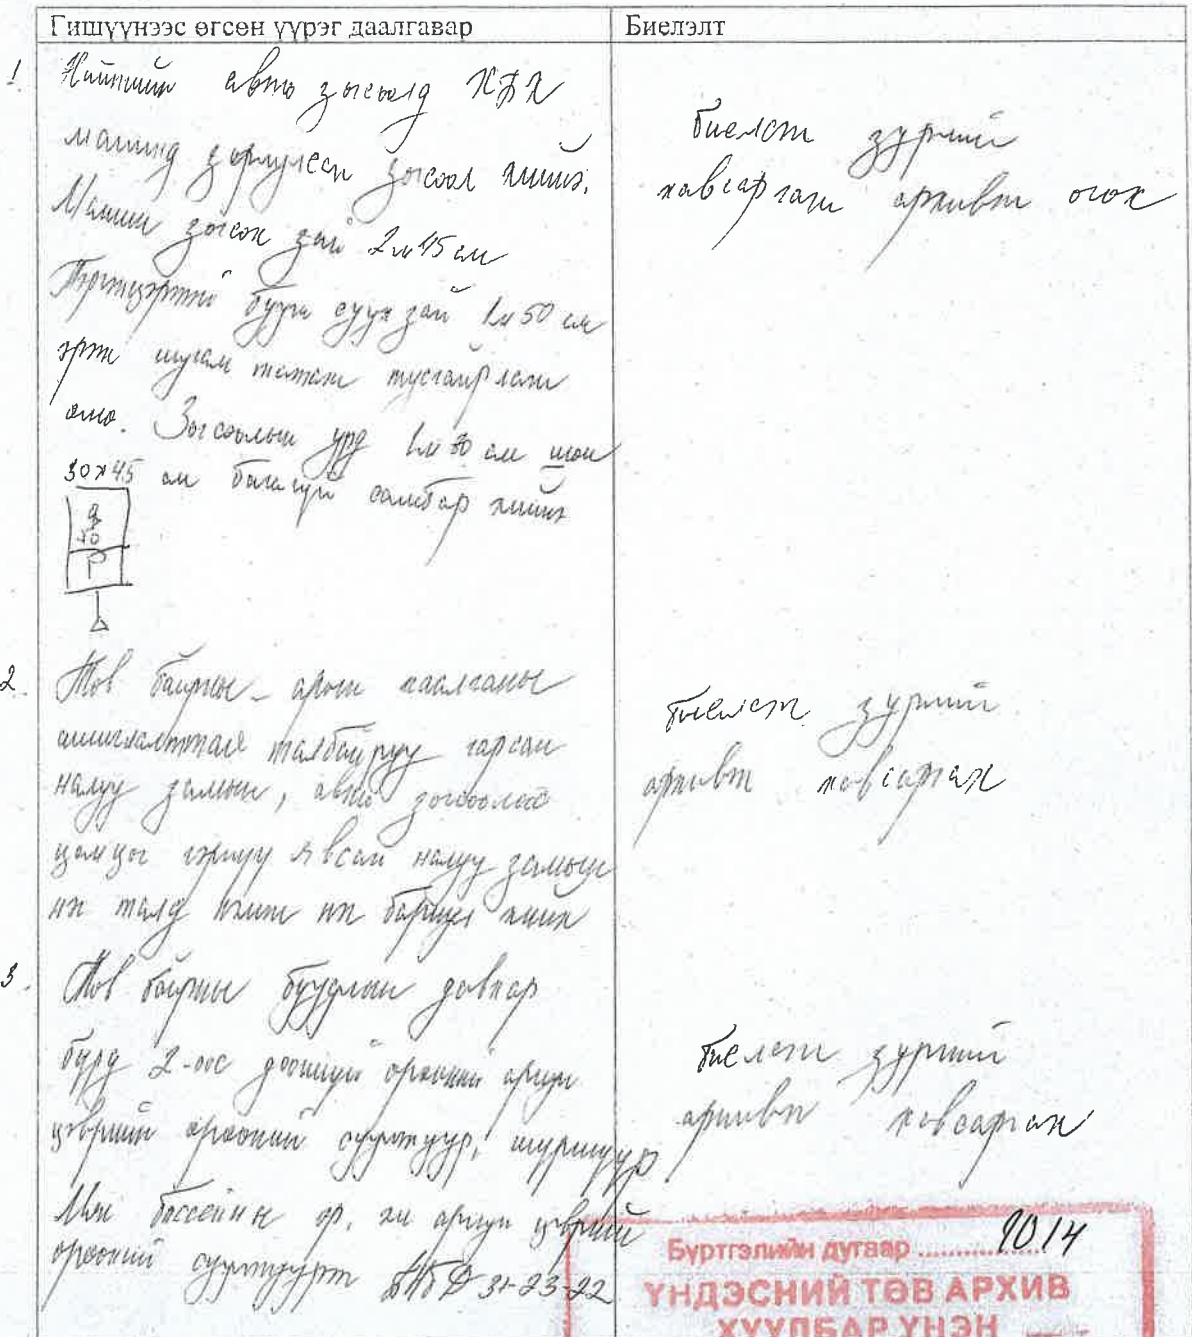 Гишүүнээс өгсөн үүрэг даалгавар
Биелэлт
1.
Нийтийн авто зогсоолд ХБХ
машинд зориулсан зогсоол хийнэ.
Машин зогсох зай 2м 45 см
Тэргэнцэртэй бууж суух зай 1м 50 см
шугам татаж тусгайрлаж
өгнө. Зогсоолын урд 1м 30 см
30×45 см самбар хийнэ
P
биелэлт зургийг
хавсаргаж архивт өгөх
2.
Төв байрны арын хаалганы
талбайруу гарсан
налуу замын, авто зогсоолоос
гэрлүү явсан налуу замын
талд хийх
биелэлт зургийг
архивт хавсаргах
3.
Төв байрны буудлын давхар
бүрд 2-оос доошгүй өрөөний ариун
цэврийн өрөөний суултуур, шүршүүр
Мөн бассейны ариун цэврийн
өрөөний суултуурт БНбД 31-23-22
биелэлт зургийг
архивт хавсаргах
Бүртгэлийн дугаар ............ 1014
ҮНДЭСНИЙ ТӨВ АРХИВ
ХУУЛБАР ҮНЭН